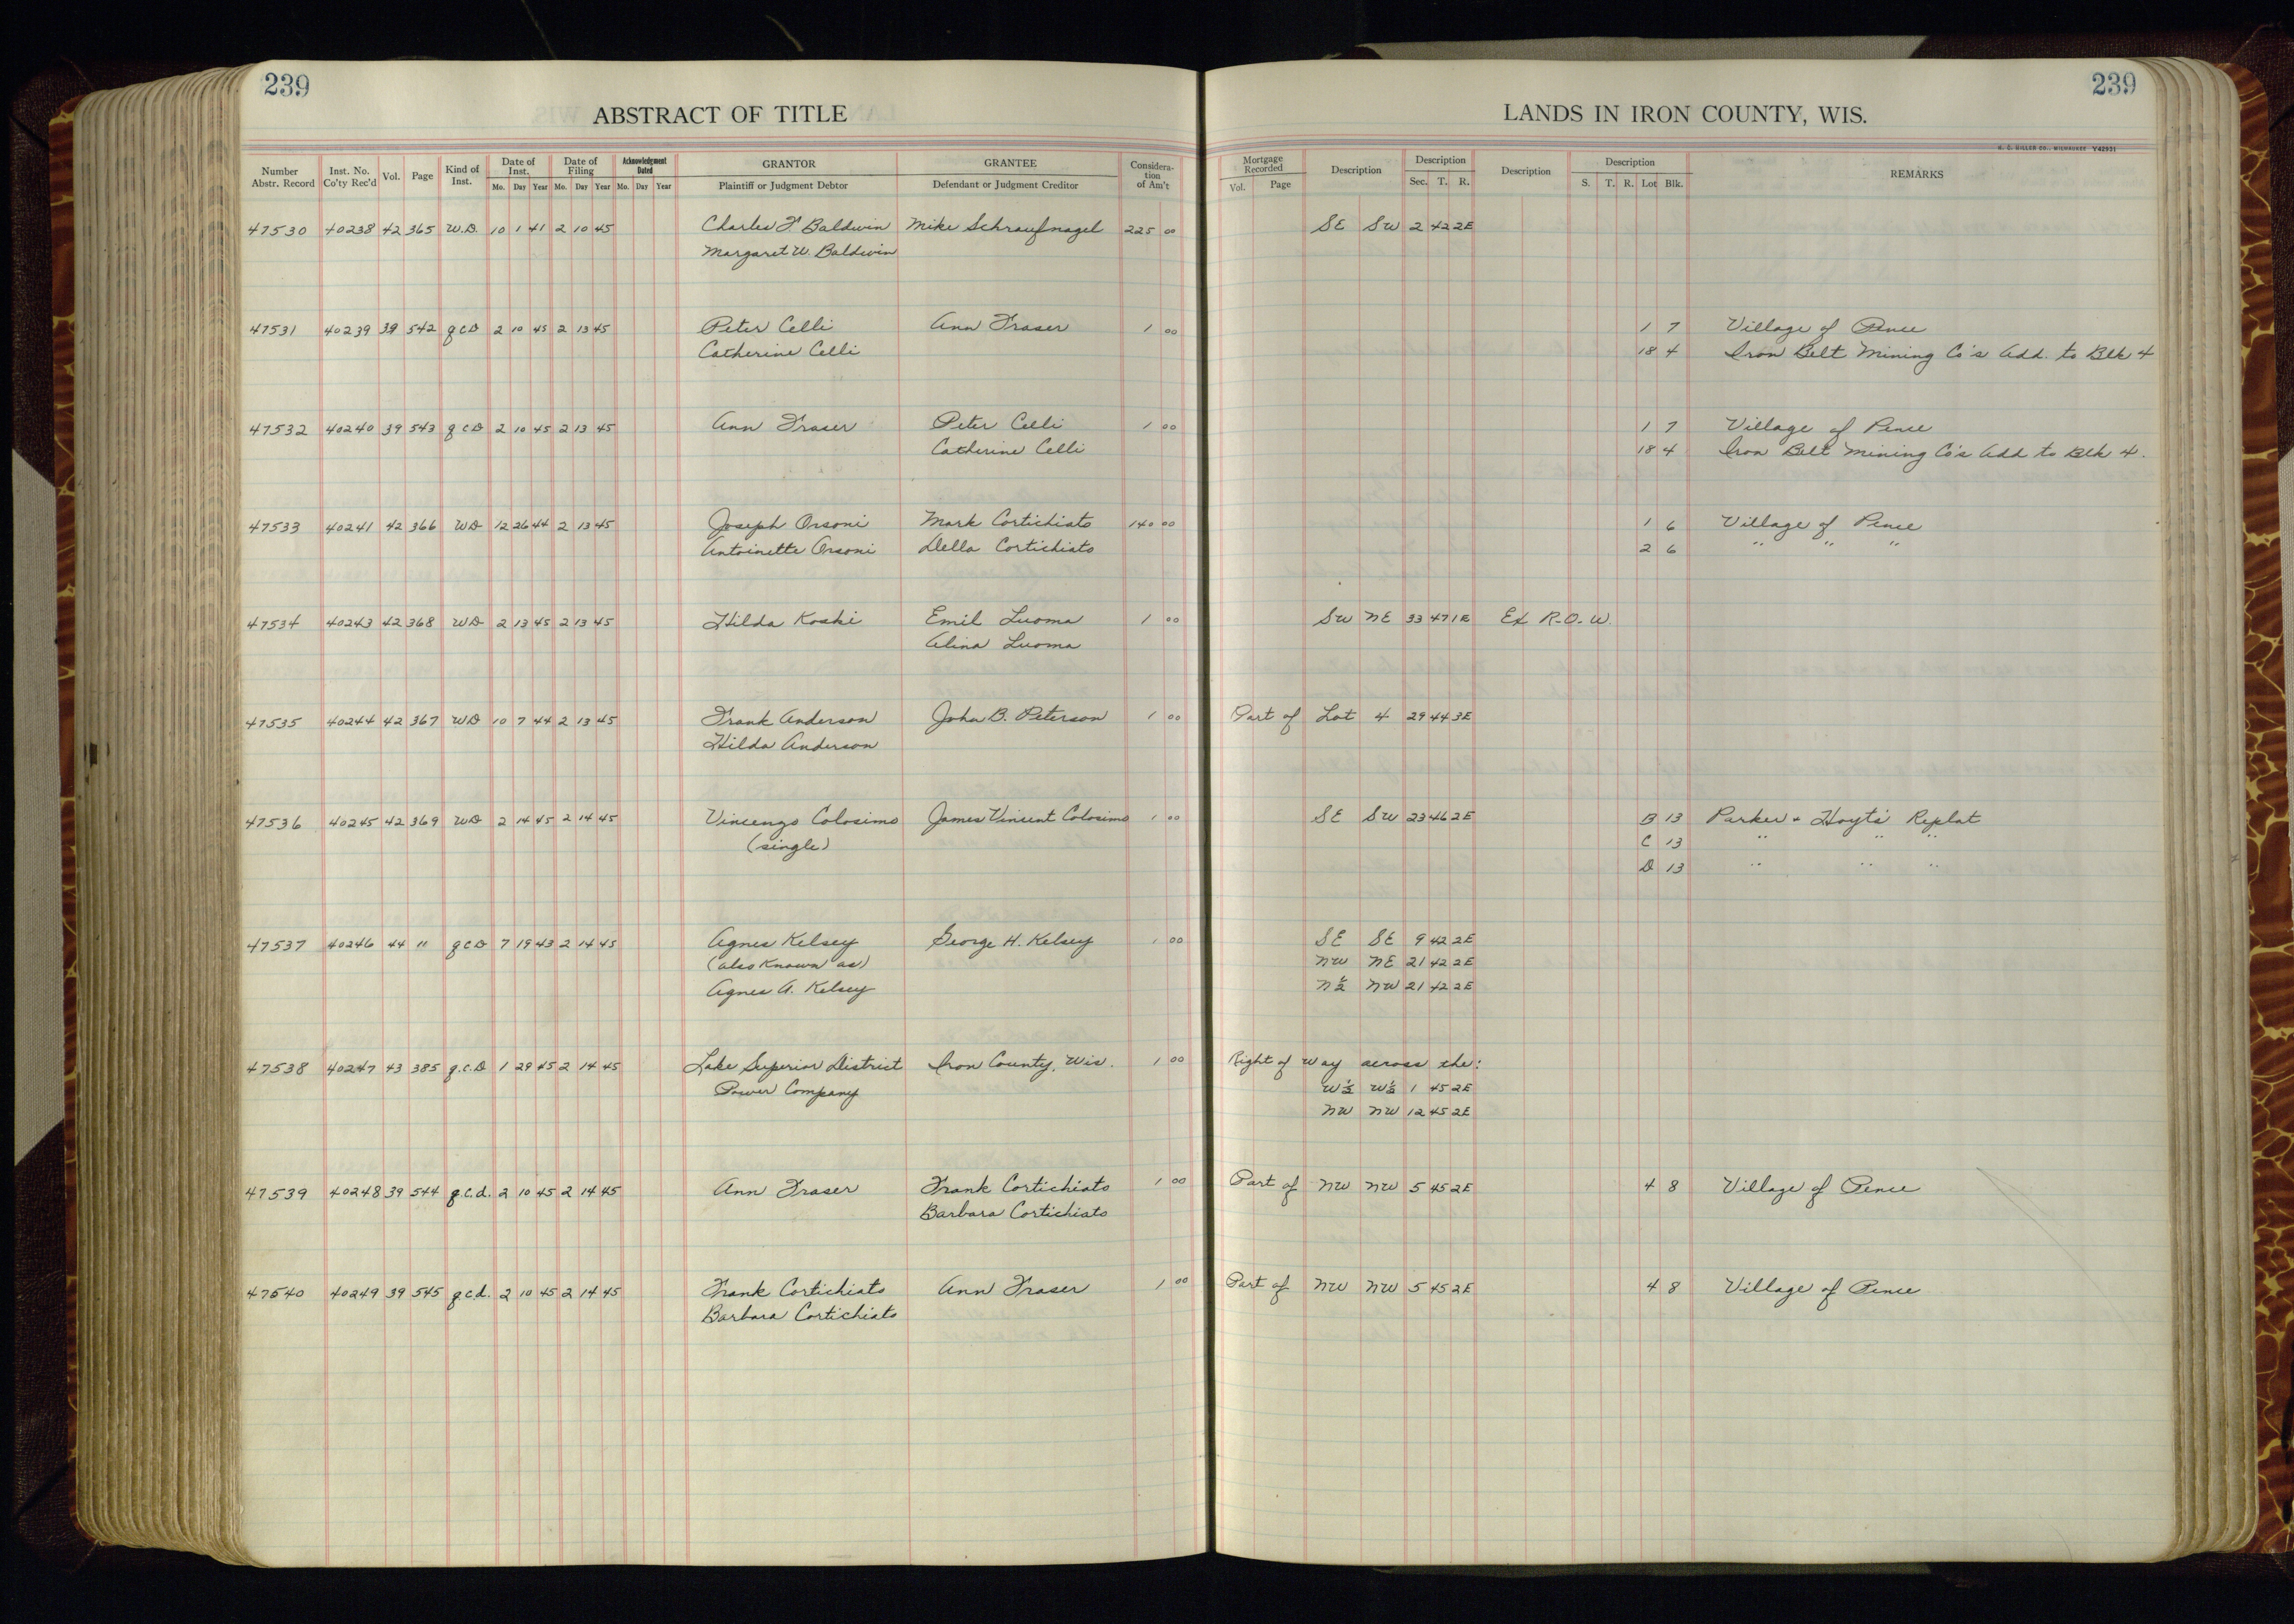 239
ABSTRACT OF TITLE
Number Abstr. Record Inst. No. Co'ty Rec'd Vol. Page Kind of Inst. Date of Inst. Mo. Day Year Date of Filing Mo. Day Year Acknowledgment Dated Mo. Day Year GRANTOR Plaintiff or Judgment Debtor GRANTEE Defendant or Judgment Creditor Consideration of Am't
239
LANDS IN IRON COUNTY, WIS.
H. C. MILLER CO., MILWAUKEE V42931
Mortgage Recorded Vol. Page Description Description Sec. T. R. Description Description S. T. R. Lot Blk. REMARKS
47530 40238 42 365 W.D. 10 1 41 2 10 45 Charles F. Baldwin Mike Schraufnagel 225 00 SE SW 2 42 2E
Margaret W. Baldwin
47531 40239 39 542 q C D 2 10 45 2 13 45 Peter Celli Ann Fraser 1 00 1 7 Village of Pence
Catherine Celli 18 4 Iron Belt Mining Co's Add. to Blk 4
47532 40240 39 543 q C D 2 10 45 2 13 45 Ann Fraser Peter Celli 1 00 1 7 Village of Pence
Catherine Celli 18 4 Iron Belt Mining Co's Add to Blk 4.
47533 40241 42 366 WD 12 26 44 2 13 45 Joseph Orsoni Mark Cortichiato 140 00 1 6 Village of Pence
Antoinette Orsoni Della Cortichiato 2 6 " " "
47534 40243 42 368 WD 2 13 45 2 13 45 Hilda Koski Emil Luoma 1 00 SW NE 33 47 1E Ex R.O.W.
Alina Luoma
47535 40244 42 367 WD 10 7 44 2 13 45 Frank Anderson John B. Peterson 1 00 Part of Lot 4 29 44 3E
Hilda Anderson
47536 40245 42 369 WD 2 14 45 2 14 45 Vincenzo Colosimo James Vinsent Colosimo 1 00 SE SW 23 46 2E B 13 Parker + Hoyt's Replat
(single) C 13 " " "
D 13 " " "
47537 40246 44 " q C D 7 19 43 2 14 45 Agnes Kelsey George H. Kelsey 1 00 SE SE 9 42 2E
(also known as) NW NE 21 42 2E
Agnes A. Kelsey N½ NW 21 42 2E
47538 40247 43 385 q.C.D 1 29 45 2 14 45 Lake Superior District Iron County, Wis. 1 00 Right of way across the:
Power Company W½ W½ 1 45 2E
NW NW 12 45 2E
47539 40248 39 544 q.c.d. 2 10 45 2 14 45 Ann Fraser Frank Cortichiato 1 00 Part of NW NW 5 45 2E 4 8 Village of Pence
Barbara Cortichiato
47540 40249 39 545 q.c.d. 2 10 45 2 14 45 Frank Cortichiato Ann Fraser 1 00 Part of NW NW 5 45 2E 4 8 Village of Pence
Barbara Cortichiato